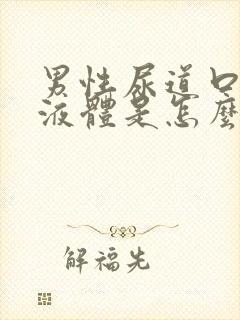 男性尿道口
液體是怎麼
解福先